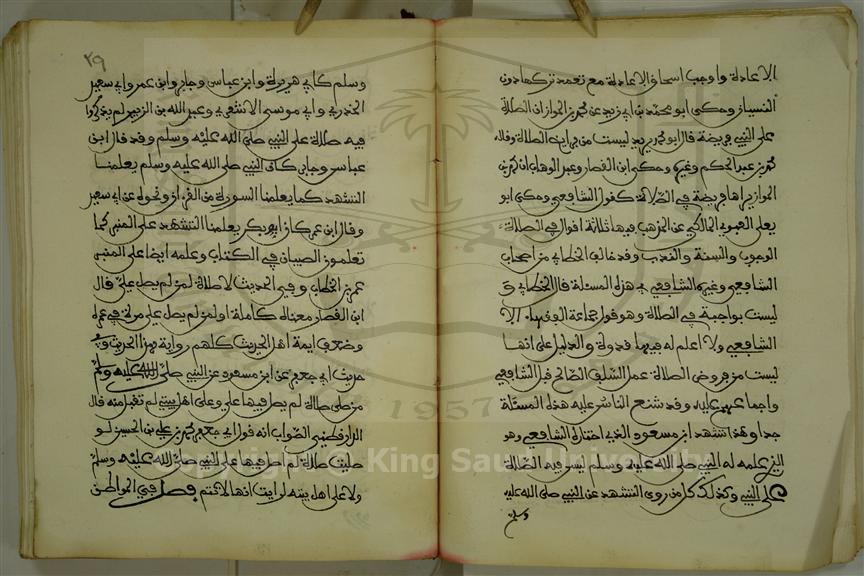 الاعادة واوجب اسحاق الاعادة مع تعمد تركها دون
النسيان وحكى ابو محمد بن ابي زيد عن محمد بن المواز ان الصلاة
على النبي فريضة قال ابو محمد يريد ليست من فرايض الصلاة وقاله
محمد بن عبد الحكم وغيره وحكى ابن القصار وعبد الوهاب ان محمد بن
المواز يراها فريضة في الصلاة كقول الشافعي وحكى ابو
يعلى العبدي المالكي عن المذهب فيها ثلاثة اقوال في الصلاة
الوجوب والسنة والندب وقد خالف الخطابي من اصحاب
الشافعي وغيره الشافعي في هذه المسئلة قال الخطابي و
ليست بواجبة في الصلاة وهو قول جماعة الفقهاء الا
الشافعي ولا اعلم له فيها قدوة والدليل على انها
ليست من فروض الصلاة عمل السلف الصالح قبل الشافعي
واجماعهم عليه وقد شنع الناس عليه هذه المسئلة
جدا وهذا تشهد ابن مسعود الذي اختاره الشافعي وهو
الذي علمه له النبي صلى الله عليه وسلم ليس فيه الصلاة
على النبي وكذلك كل من روى التشهد عن النبي صلى الله عليه
وسلم
٢٩
وسلم كابي هريرة وابن عباس وجابر وابن عمر وابي سعيد
الخدري وابي موسى الاشعري وعبد الله بن الزبير لم يذكروا
فيه صلاة على النبي صلى الله عليه وسلم وقد قال ابن
عباس وجابر كان النبي صلى الله عليه وسلم يعلمنا
التشهد كما يعلمنا السورة من القرءان ونحوه عن ابي سعيد
وقال ابن عمر كان ابو بكر يعلمنا التشهد على المنبر كما
تعلمون الصبيان في الكتاب وعلمه ايضا على المنبر
عمر بن الخطاب وفي الحديث لا صلاة لمن لم يصل علي قال
ابن القصار معناه كاملة او لمن لم يصل علي مرة في عمره
وضعف ايمة اهل الحديث كلهم رواية هذا الحديث وفي
حديث ابي جعفر عن ابن مسعود عن النبي صلى الله عليه وسلم
من صلى صلاة لم يصل فيها علي وعلى اهل بيتي لم تقبل منه قال
الدارقطني الصواب انه قول ابي جعفر محمد بن علي بن الحسين لو
صليت صلاة لم اصل فيها على النبي صلى الله عليه وسلم
ولا على اهل بيته لرايت انها لا تتم فصل في المواطن
Copyright © King Saud University
1957